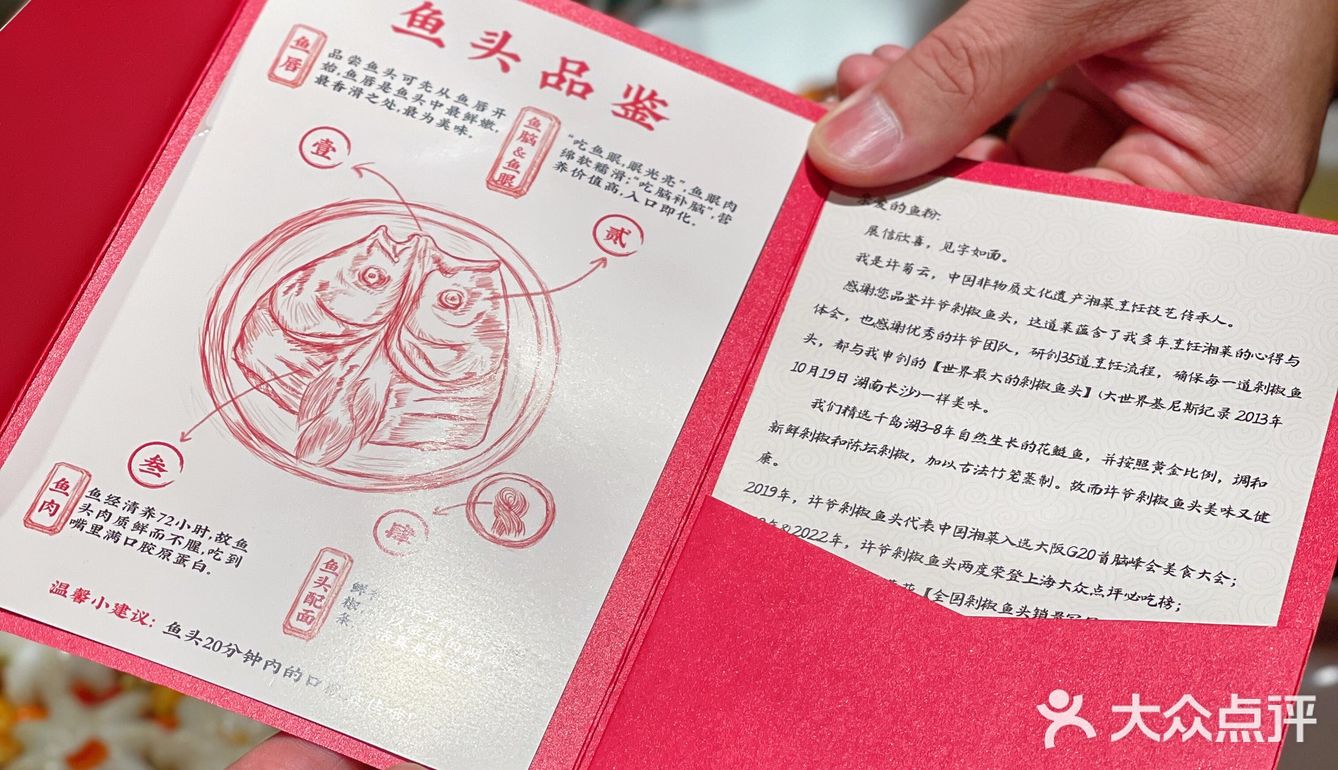 鱼头品鉴
鱼唇
品尝鱼头可先从鱼唇开
始,鱼唇是鱼头中最鲜嫩,
最香滑之处,最为美味.
鱼脑&鱼眼
“吃鱼眼,眼光亮”,鱼眼肉
绵软糯滑;“吃脑补脑”,营
养价值高,入口即化.
壹
贰
叁
鱼肉
鱼经清养72小时,故鱼
头肉质鲜而不腥,吃到
嘴里满口胶原蛋白.
肆
鱼头配面
鲜
椒
条
温馨小建议: 鱼头20分钟内的口
爱的鱼粉:
展信欣喜，见字如面。
我是许菊云，中国非物质文化遗产湘菜烹饪技艺传承人。
感谢您品鉴许爷剁椒鱼头，这道菜蕴含了我多年烹饪湘菜的心得与
体会，也感谢优秀的许爷团队，研创35道烹饪流程，确保每一道剁椒鱼
头，都与我申创的【世界最大的剁椒鱼头】(大世界基尼斯纪录 2013年
10月19日 湖南长沙)一样美味。
我们精选千岛湖3-8年自然生长的花鲢鱼，并按照黄金比例，调和
新鲜剁椒和陈坛剁椒，加以古法竹笼蒸制。故而许爷剁椒鱼头美味又健
康。
2019年，许爷剁椒鱼头代表中国湘菜入选大阪G20首脑峰会美食大会；
&2022年，许爷剁椒鱼头两度荣登上海大众点评必吃榜；
【全国剁椒鱼头销量
大众点评